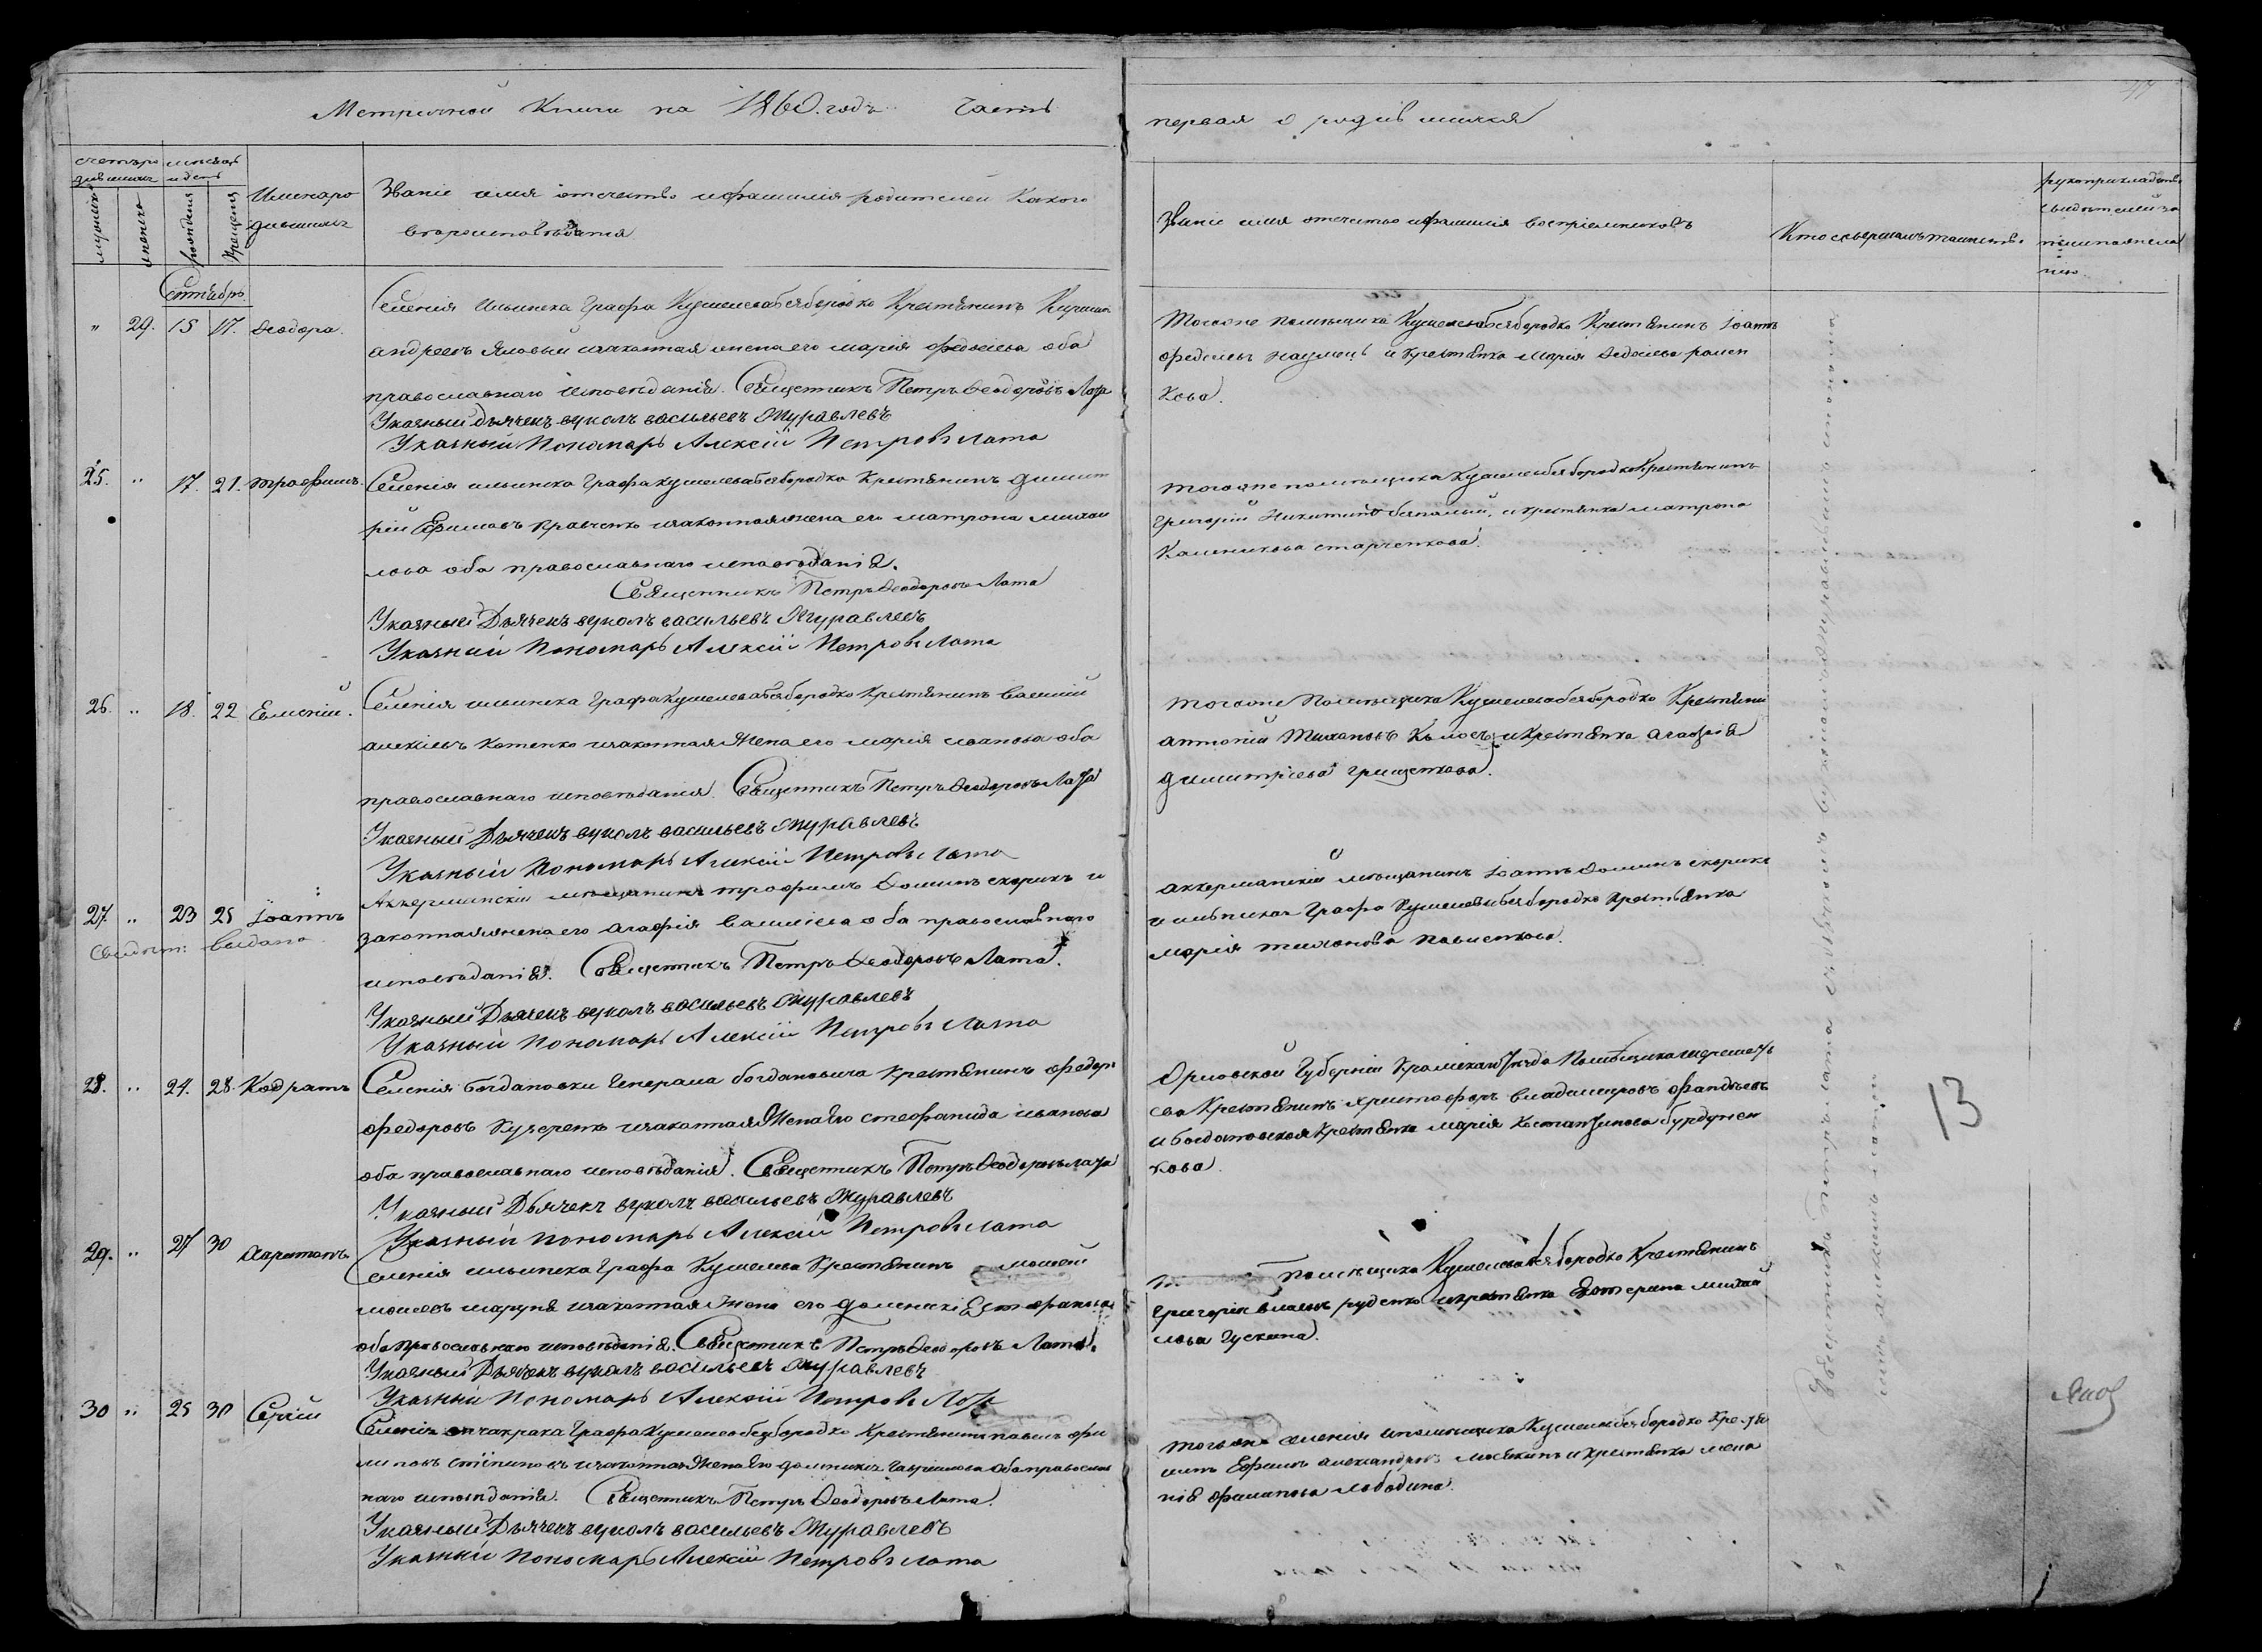 Метричной Книги на 1860. годъ Часть
первая о родившихся
счетъ ро
дившихся
мужеска
женска
месяцъ
и день
рожденія
крещенія
Имена ро
дившихся
Званіе имя отечество и фамилія родителей Какого
вероисповѣданія
Званіе имя отечество и фамилія воспріемниковъ
Кто совершалъ таинство.
рукоприкладство
свидетелей за
писи по жела
нію.
Сентябрь
" 29. 15 17. Феодора.
Селенія Ильинска Графа Кушелева безбородко Крестянинъ Кирилъ
андреевъ Яловый изаконная жена его марія федосіева оба
православнаго исповѣданія. Священникъ Петръ Феодоровъ Лата
Указный дьячекъ вуколъ васильевъ Журавлевъ
Указный Пономарь Алексій Петровъ Лата
Тогоже помѣщика Кушелева безбородко Крестянинъ Іоаннъ
федосіевъ наумецъ и крестянка Марія
кова.
25. " 17. 21. Трофимъ.
Селенія ильинска Графа кушелева безбородка Крестянинъ димит
рій Ефимовъ Кравченко изаконная жена его матрона михаи
лова оба православнаго исповѣданія.
Священникъ Петръ Феодоровъ Лата
Указный Дьячекъ вуколъ васильевъ Журавлевъ
Указный Пономарь Алексій Петровъ Лата
тогоже помѣщика Кушелева безбородко Крестянинъ
Григорій Никитинъ безпалый, и крестянка матрона
Калиникова старченкова.
26. " 18. 22 Евменій.
Селенія ильинска Графа Кушелева безбородко Крестянинъ Василій
алексіевъ Котенко изаконная Жена его марія иванова оба
православнаго исповѣданія. Священникъ Петръ Феодоровъ Лата
Указный Дьячекъ вуколъ васильевъ Журавлевъ
Указный Пономарь Алексій Петровъ Лата
тогоже Помѣщика Кушелева безбородко Крестянин
антоній Тихановъ и Крестянка агафія
димитріева грищенкова.
27. " 23 25 Іоаннъ
Свидет: выдано.
Аккерманскій мѣщанинъ трофимъ Фоминъ скорикъ и
законная жена его агафія василіева оба православнаго
исповѣданія. Священникъ Петръ Феодоровъ Лата.
Указный Дьячекъ вуколъ васильевъ Журавлевъ
Указный Пономарь Алексій Петровъ Лата
аккерманскій мѣщанинъ Іоаннъ Фоминъ скорикъ
и ильинска Графа Кушелева безбородко крестьянка
марія тиханова
28. " 24. 28. Кодратъ
Селенія богдановки Генерала богдановича Крестянинъ федоръ
федоровъ Кучеренко изаконная Жена его стефанида иванова
оба православнаго исповѣданія. Священникъ Петръ Феодоровъ лата
Указный Дьячекъ вуколъ васильевъ Журавлевъ
Указный Пономарь Алексій Петровъ Лата
Орловской Губерніи Кромскаго Уезда Помѣщика
ева Крестянинъ христофоръ владимировъ
и богдановская крестянка марія Константинова бурдунен
кова.
13
29. " 27 30 Харитонъ.
Селенія ильинска Графа Кушелева Крестянинъ моисей
моисеевъ изаконная Жена его доменикія
оба православнаго исповѣданія. Священникъ Петръ Феодоровъ Лата.
Указный Дьячекъ вуколъ васильевъ Журавлевъ
Указный Пономарь Алексій Петровъ Лата
помѣщика Кушелева безбородко Крестянинъ
Григорій власовъ руденко икрестянка Екатерина михай
лова Гускина.
30 " 25 30 Сергій
Селенія Графа Кушелева безбородко Крестянинъ павелъ фи
липовъ изаконная Жена его домникія Гаврилова оба православ
наго исповѣданія. Священникъ Петръ Феодоровъ Лата.
Указный Дьячекъ вуколъ васильевъ Журавлевъ
Указный Пономарь Алексій Петровъ Лата
тогоже селенія ипомѣщика Кушелева безбородко Крестя
нинъ Ефимъ александровъ икрестянка
филипова лободина.